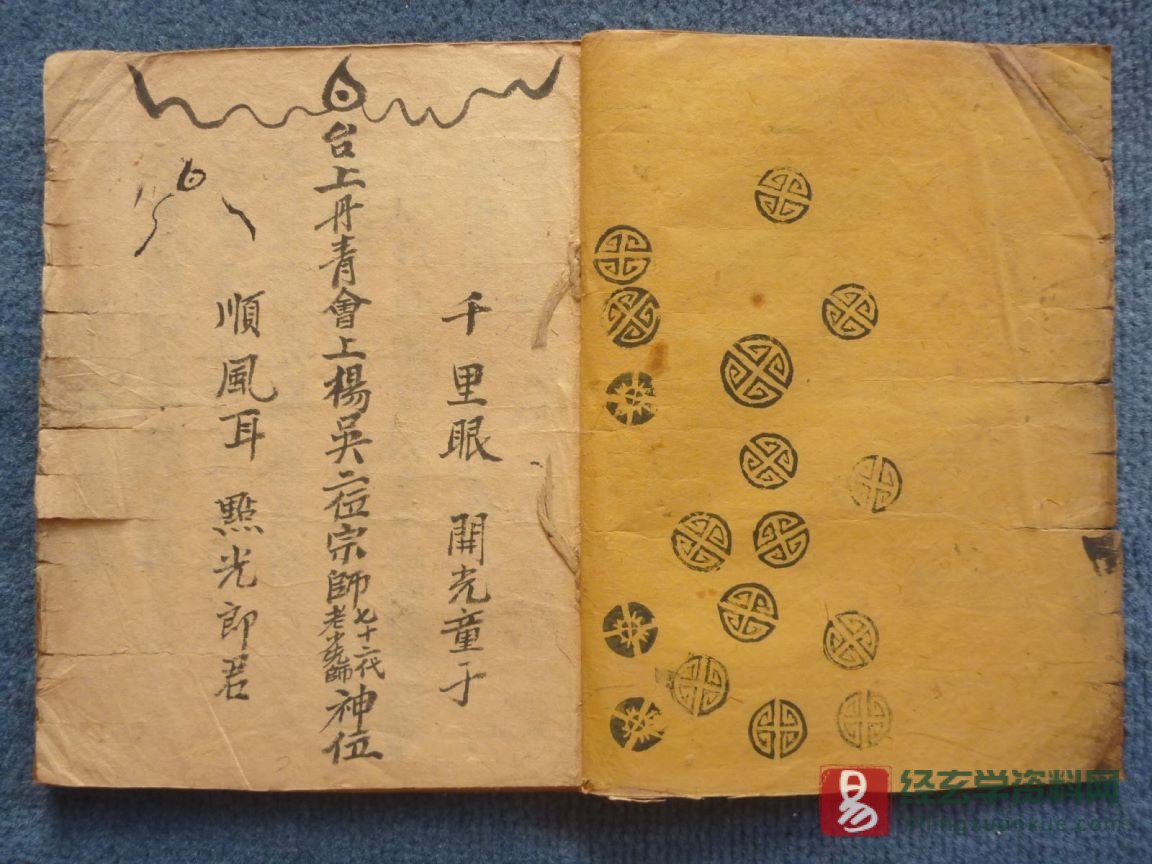 千里眼　開光童子
台上丹青會上楊吳二位宗師七十二代老少先師神位
順風耳　點光郎君
易 经玄学资料网